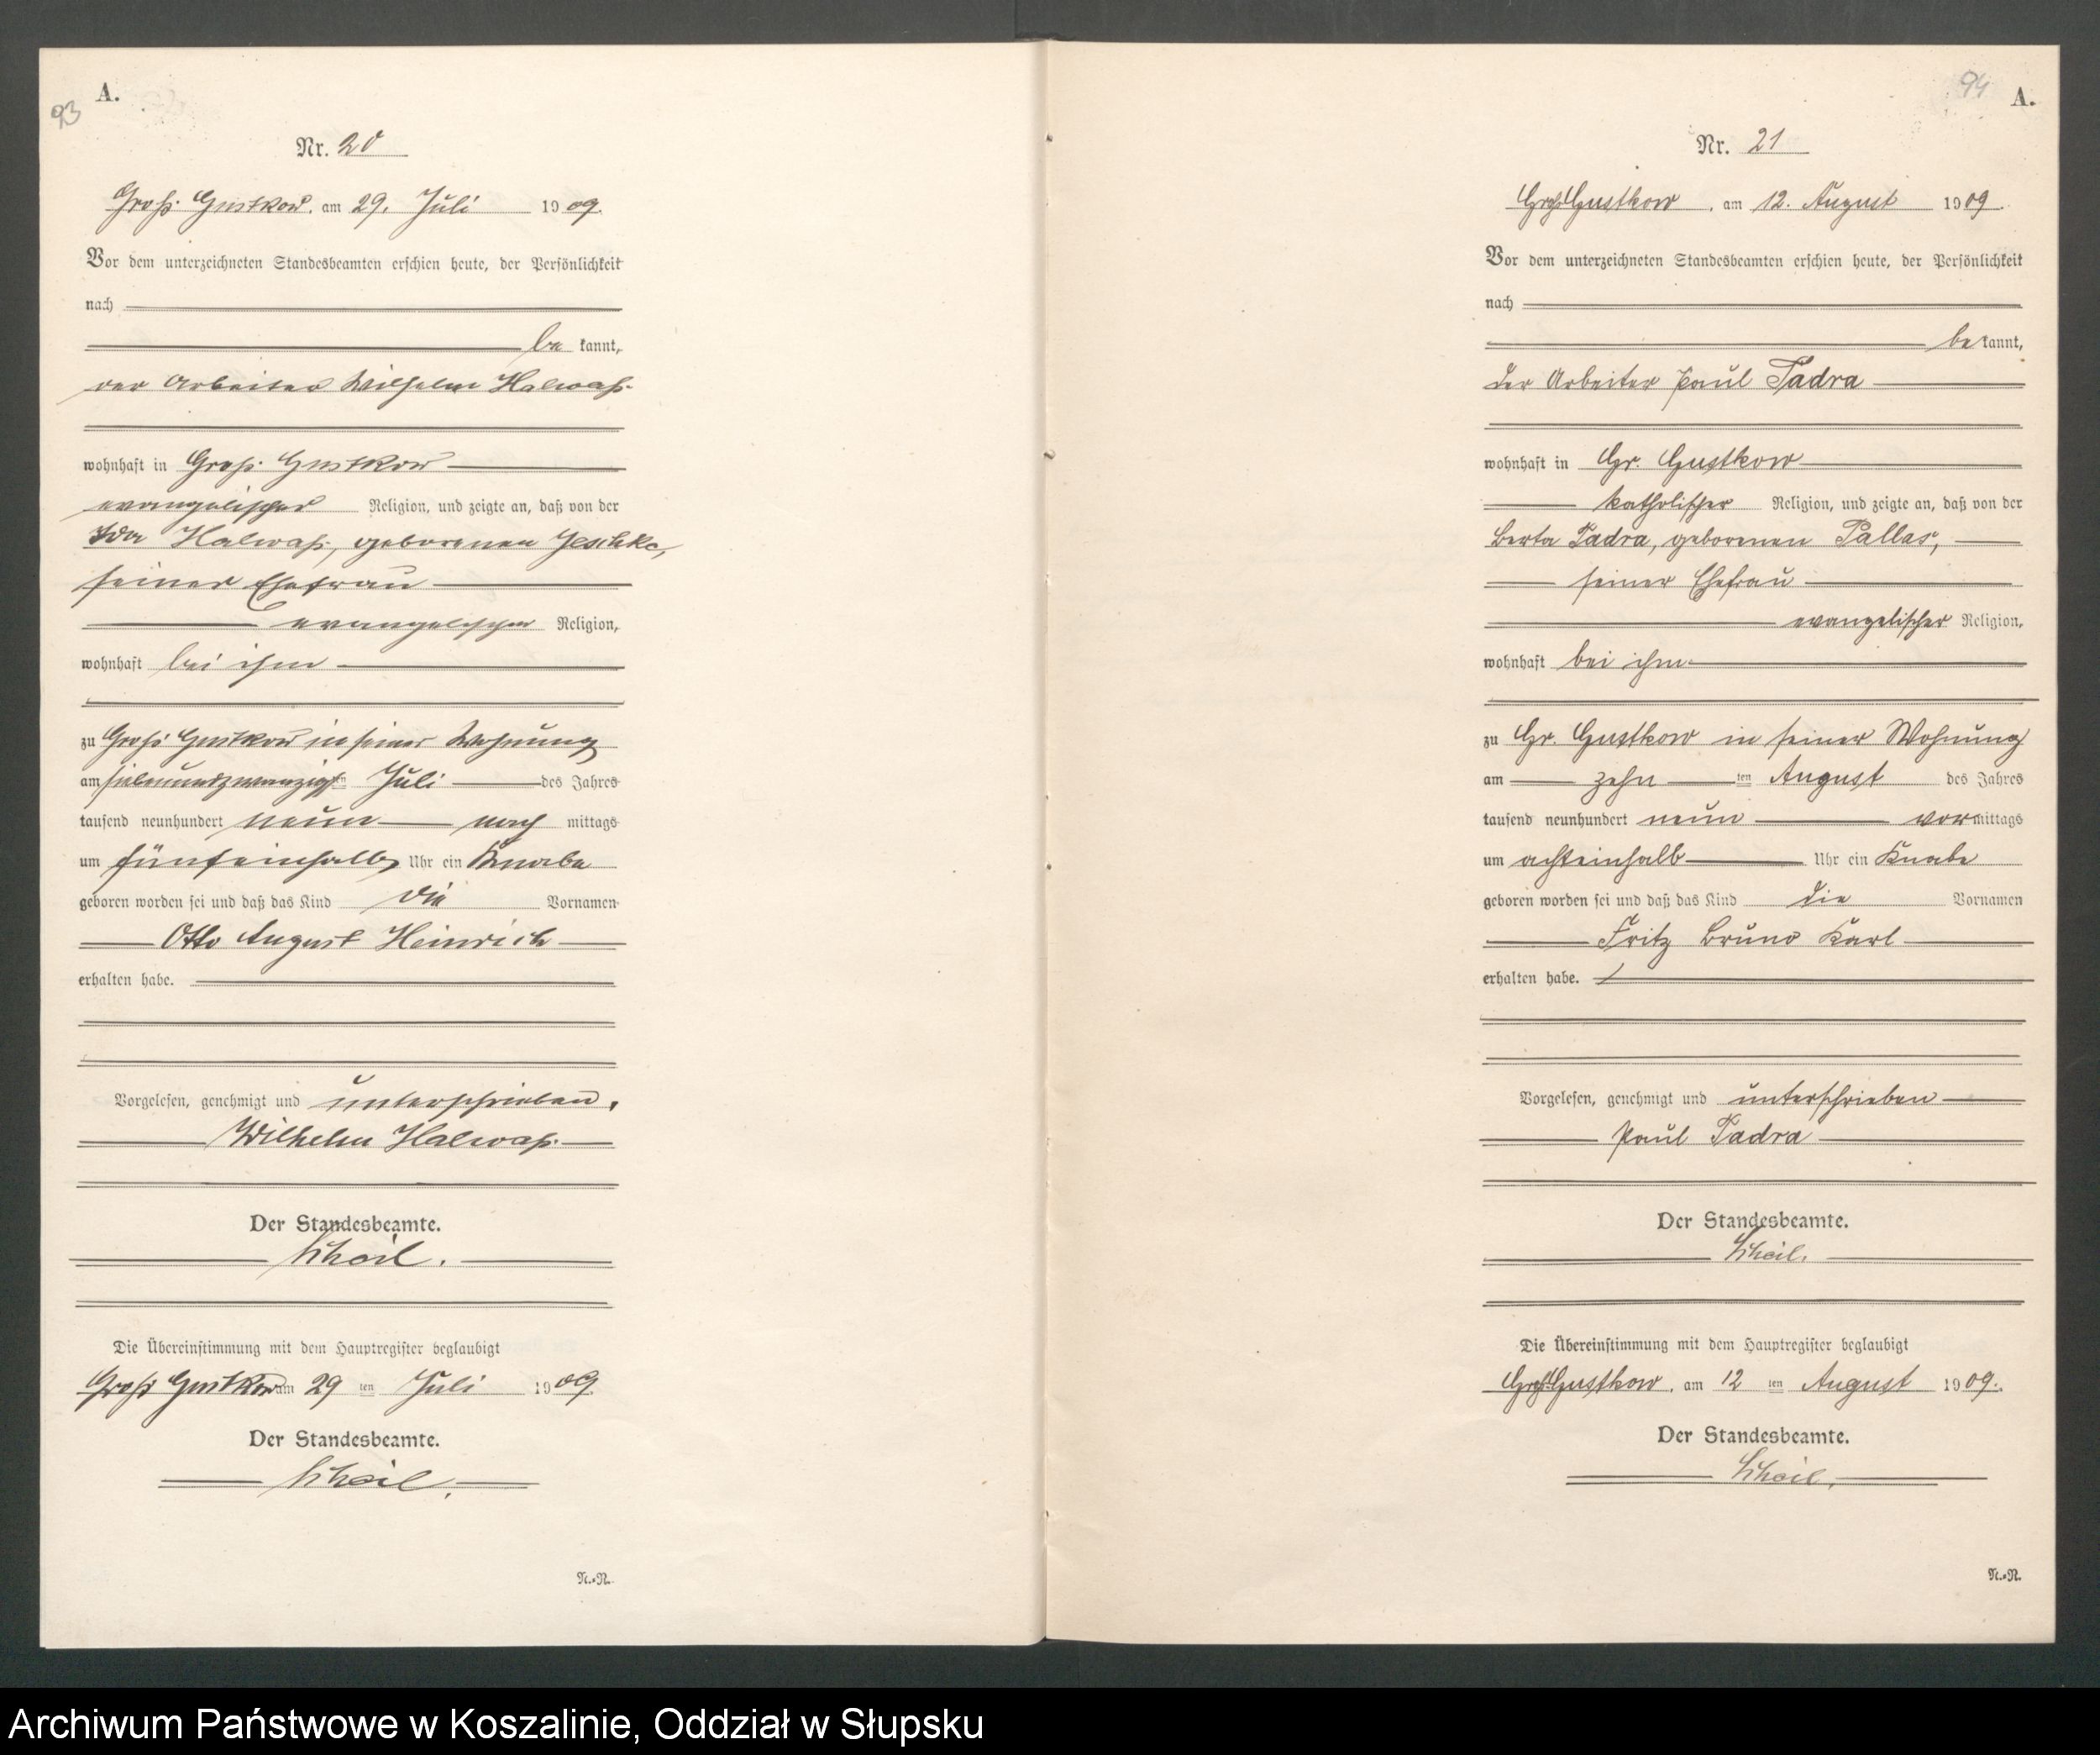 93
A.
Nr. 20
Groß Gustkow, am 29. Juli 1909.
Vor dem unterzeichneten Standesbeamten erschien heute, der Persönlichkeit
nach
be kannt,
der Arbeiter Wilhelm Halwaß
wohnhaft in Groß Gustkow
evangelischer Religion, und zeigte an, daß von der
Ida Halwaß, geborenen Jeschke,
seiner Ehefrau
evangelischer Religion,
wohnhaft bei ihm
zu Groß Gustkow in seiner Wohnung
am siebenundzwanzigsten Juli des Jahres
tausend neunhundert neun nach mittags
um fünfeinhalb Uhr ein Knabe
geboren worden sei und daß das Kind die Vornamen
Otto August Heinrich
erhalten habe.
Vorgelesen, genehmigt und unterschrieben.
Wilhelm Halwaß
Der Standesbeamte.
Die Übereinstimmung mit dem Hauptregister beglaubigt
Groß Gustkow am 29 ten Juli 1909.
Der Standesbeamte.
N.=R.
94
A.
Nr. 21
Groß Gustkow, am 12. August 1909.
Vor dem unterzeichneten Standesbeamten erschien heute, der Persönlichkeit
nach
be kannt,
der Arbeiter Paul Tadra
wohnhaft in Gr. Gustkow
katholischer Religion, und zeigte an, daß von der
Berta Tadra, geborenen Pallas,
seiner Ehefrau
evangelischer Religion,
wohnhaft bei ihm
zu Gr. Gustkow in seiner Wohnung
am zehn ten August des Jahres
tausend neunhundert neun vor mittags
um achteinhalb Uhr ein Knabe
geboren worden sei und daß das Kind die Vornamen
Fritz Bruno Karl
erhalten habe.
Vorgelesen, genehmigt und unterschrieben
Paul Tadra
Der Standesbeamte.
Die Übereinstimmung mit dem Hauptregister beglaubigt
Groß Gustkow, am 12 ten August 1909.
Der Standesbeamte.
N.=R.
Archiwum Państwowe w Koszalinie, Oddział w Słupsku